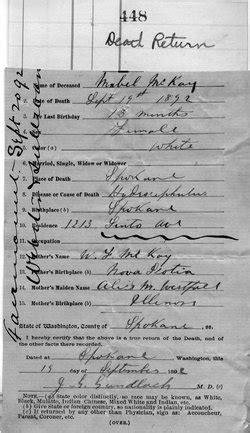 448
Dead Return
Name of Deceased Mabel McKay
Date of Death Sept 19th 1892
Last Birthday 13 months
Female
White
Married, Single, Widow or Widower
7. Place of Death Spokane
8. Disease or Cause of Death Hydrocephalus
9. Birthplace (b) Spokane
10. Residence 1213 Ave
11. Occupation
12. Father's Name W. McKay
13. Birthplace (b) Nova Scotia
14. Mother's Maiden Name Alice M. Westfall
15. Mother's Birthplace (b) Illinois
State of Washington, County of Spokane, ss.
I hereby certify that the above is a true return of the Death, and
the other facts there recorded.
Dated at Spokane Washington, this
19 September 1892
J. G. Gundlach M. D. (c)
NOTE.—(a) State color distinctly, so race may be known, as White,
Black, Mulatto, Indian, Chinese, Mixed White and Indian, etc.
(b) Give State or foreign country, so nationality is plainly indicated.
(c) If returned by any other than Physician, sign as: Accoucheur,
Parent, Coroner, etc.
(OVER.)
Sept 20 92